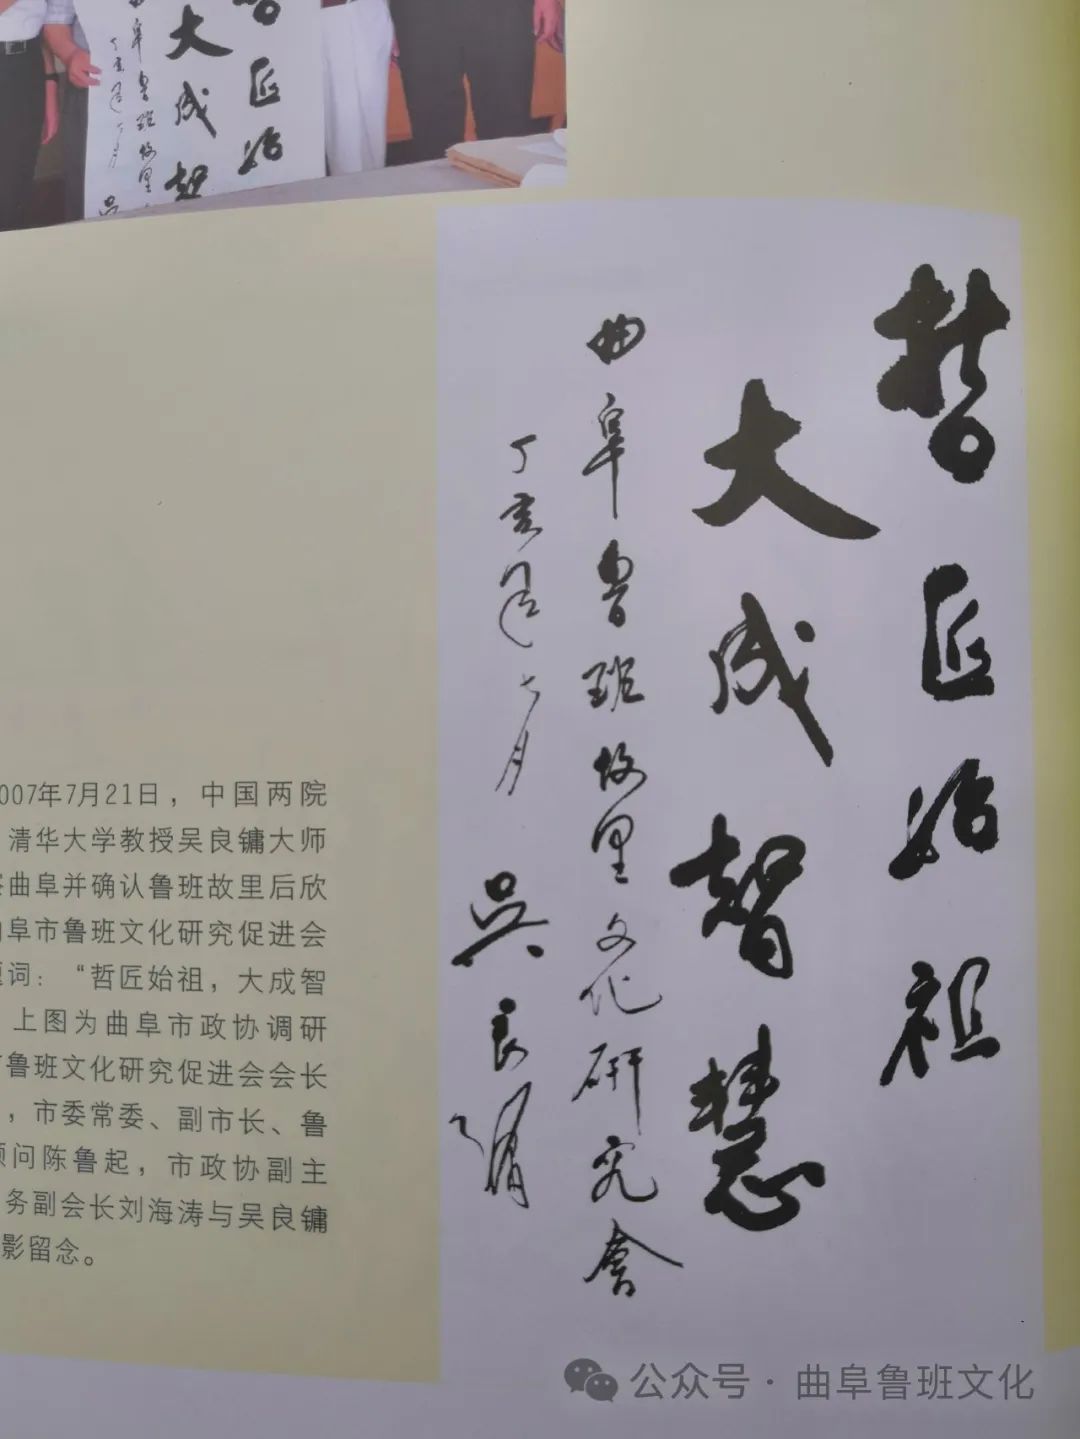 大成智
匠始
曲阜鲁班故里
丁亥年七月
吴
哲匠始祖
大成智慧
曲阜鲁班故里文化研究會
丁亥年七月
吴良镛
007年7月21日，中国两院
清华大学教授吴良镛大师
曲阜并确认鲁班故里后欣
阜市鲁班文化研究促进会
词：“哲匠始祖，大成智
上图为曲阜市政协调研
鲁班文化研究促进会会长
，市委常委、副市长、鲁
顾问陈鲁起，市政协副主
务副会长刘海涛与吴良镛
影留念。
公众号·曲阜鲁班文化